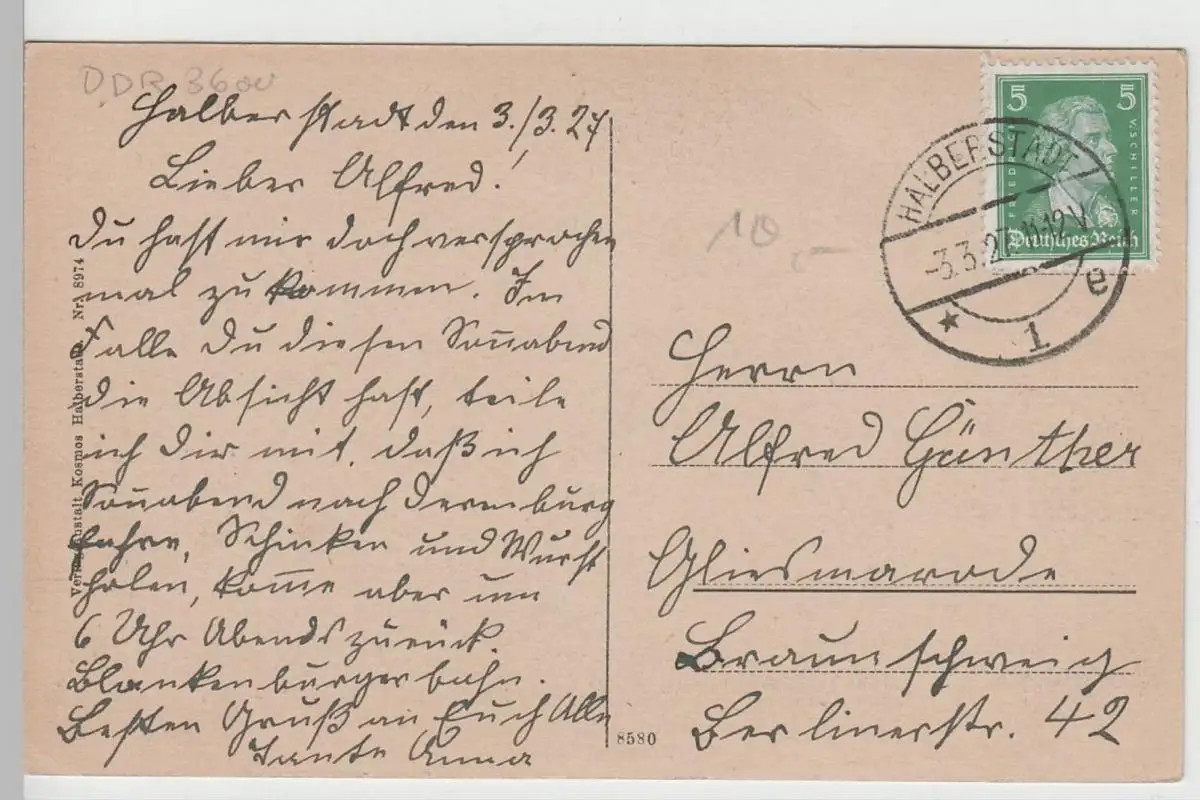 DDR 3600
Halberstadt den 3./3.27
Lieber Alfred!
Du hast mir doch versprochen
mal zu kommen. Im
Falle Du diesen Son̄abend
die Absicht hast, teile
ich Dir mit, daß ich
Son̄abend nach Derenburg
fahre, Schinken und Wurst
holen, kom̄e aber um
6 Uhr Abends zurück.
Blankenburgerbahn.
Besten Gruß an Euch Alle
Tante Anna
Kosmos Halberstadt. Nr. 8974
8580
10,-
5 5
FRIEDR. V. SCHILLER
Deutsches Reich
HALBERSTADT
-3.3.27.11-12V
* 1 e
Herrn
Alfred Günther
Gliesmarode
Braunschweig
Berlinerstr. 42